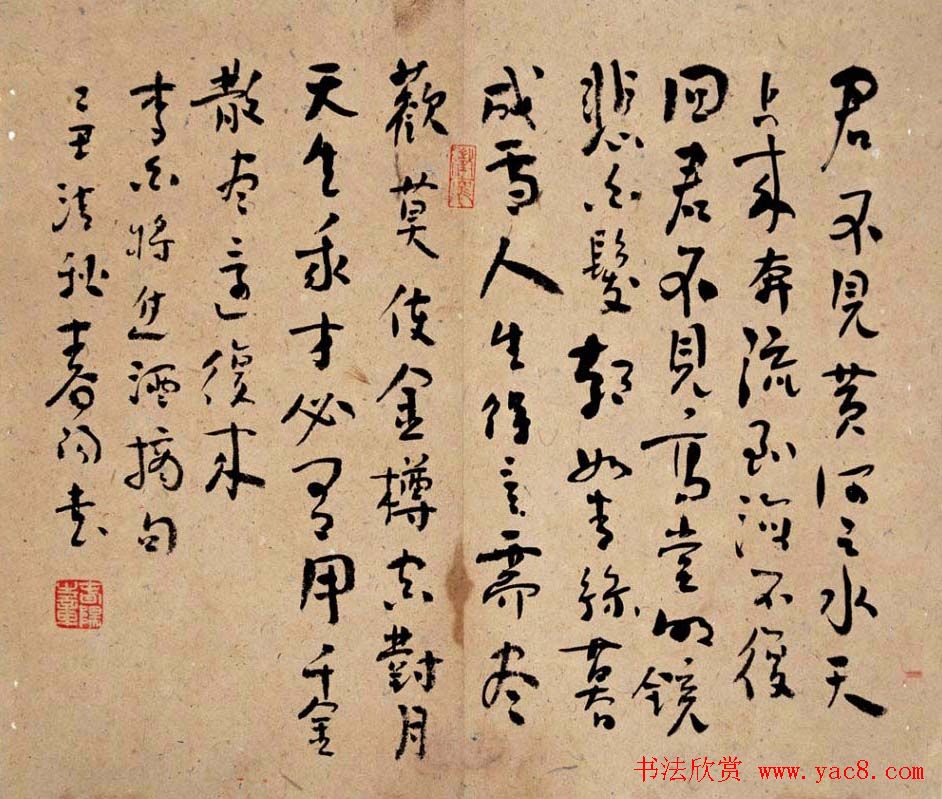 君不見黄河之水天
上来奔流到海不復
回君不見高堂明鏡
悲白髮朝如青絲暮
成雪人生得意需尽
歡莫使金樽空對月
天生我才必有用千金
散尽還復来
李白將进酒摘句
己丑清秋春阳书
书法欣赏 www.yac8.com